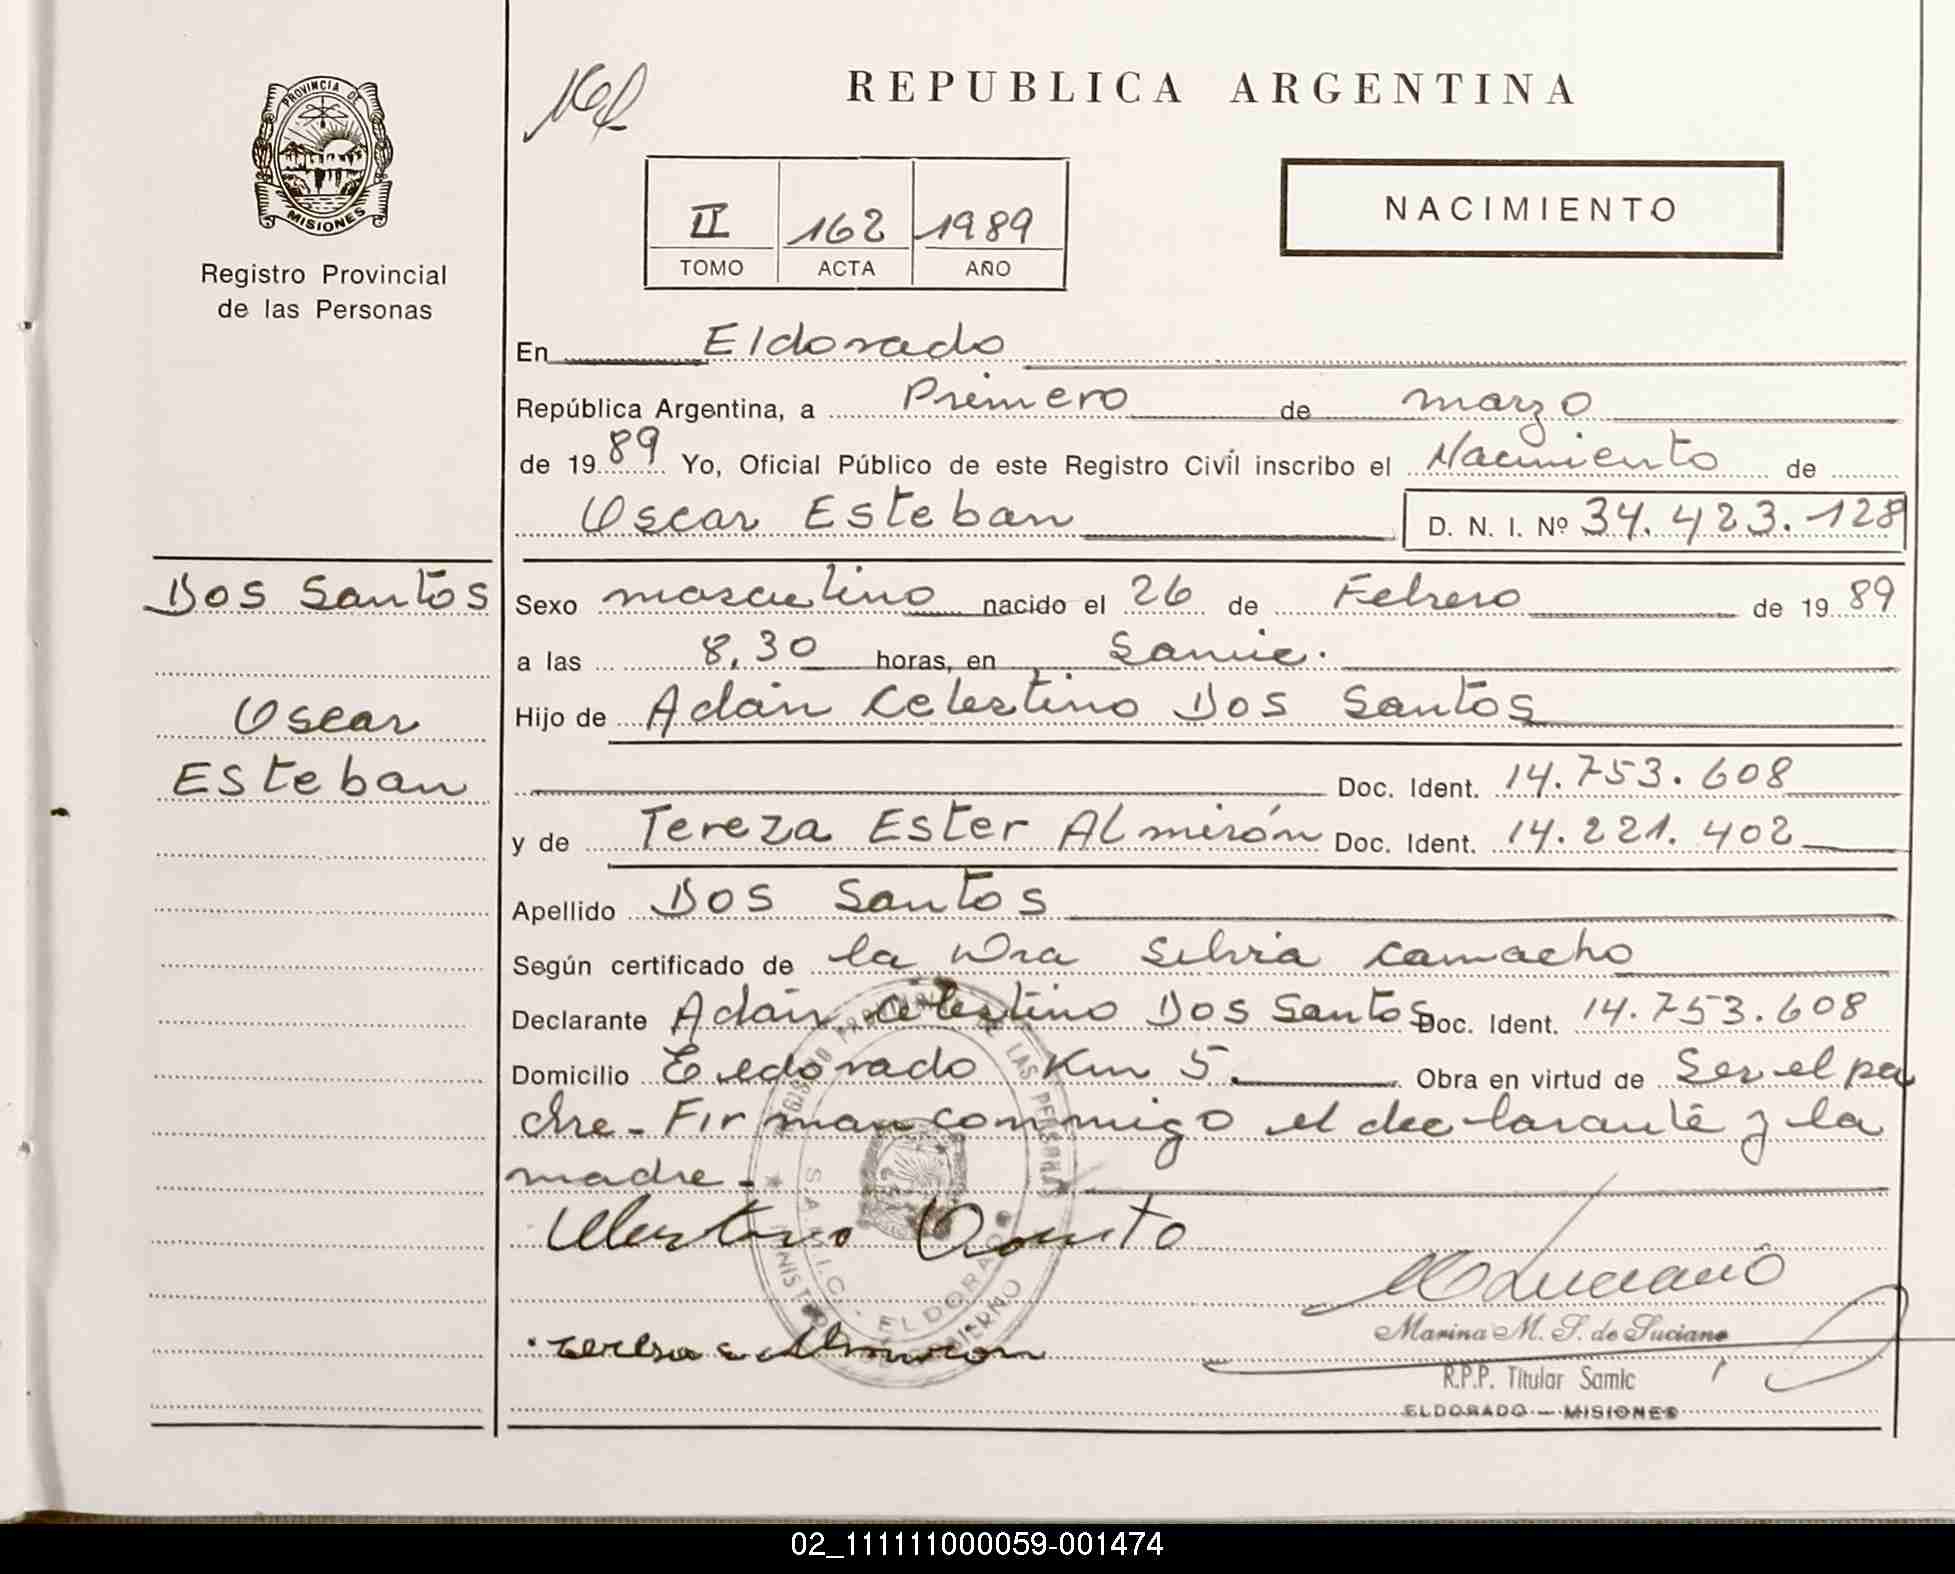 PROVINCIA DE
MISIONES
Registro Provincial
de las Personas
Dos Santos
Oscar
Esteban
REPUBLICA ARGENTINA
II 162 1989
TOMO ACTA AÑO
NACIMIENTO
En Eldorado
República Argentina, a Primero de marzo
de 1989 Yo, Oficial Público de este Registro Civil inscribo el Nacimiento de
Oscar Esteban D. N. I. Nº 34.423.128
Sexo masculino nacido el 26 de Febrero de 1989
a las 8,30 horas, en Samic.
Hijo de Adán Celestino Dos Santos
Doc. Ident. 14.753.608
y de Tereza Ester Almirón Doc. Ident. 14.221.402
Apellido Dos Santos
Según certificado de la Dra Silvia Camacho
Declarante Adán Celestino Dos Santos Doc. Ident. 14.753.608
Domicilio Eldorado Km 5. Obra en virtud de Ser el pa
dre - Firman conmigo el declarante y la
madre -
REGISTRO PROVINCIAL DE LAS PERSONAS
S.A.M.I.C. - ELDORADO
MINISTERIO DE GOBIERNO
Teresa E Almiron
M Luciano
Marina M. S. de Luciano
R.P.P. Titular Samic
ELDORADO - MISIONES
02_111111000059-001474